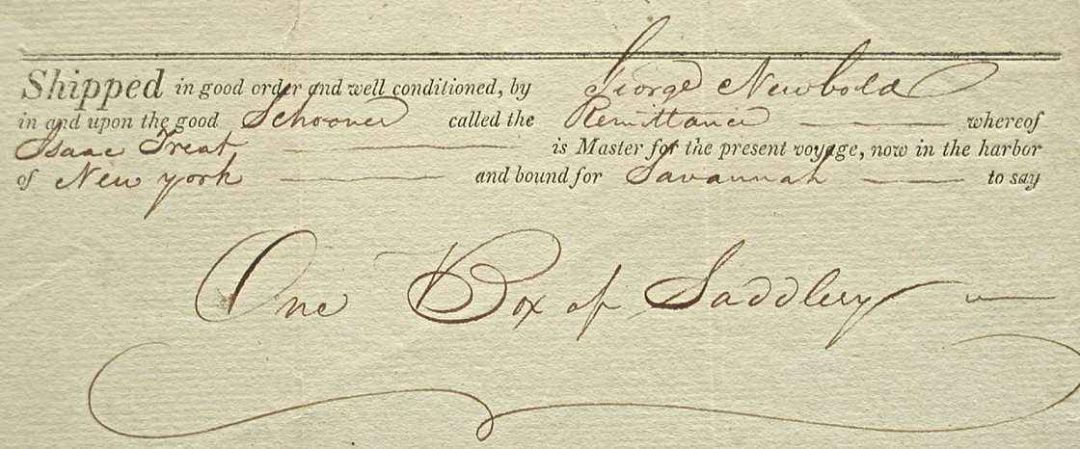 Shipped in good order and well conditioned, by George Newbold
in and upon the good Schooner called the Remittance whereof
Isaac Treat is Master for the present voyage, now in the harbor
of New york and bound for Savannah to say
One Box of Saddlery